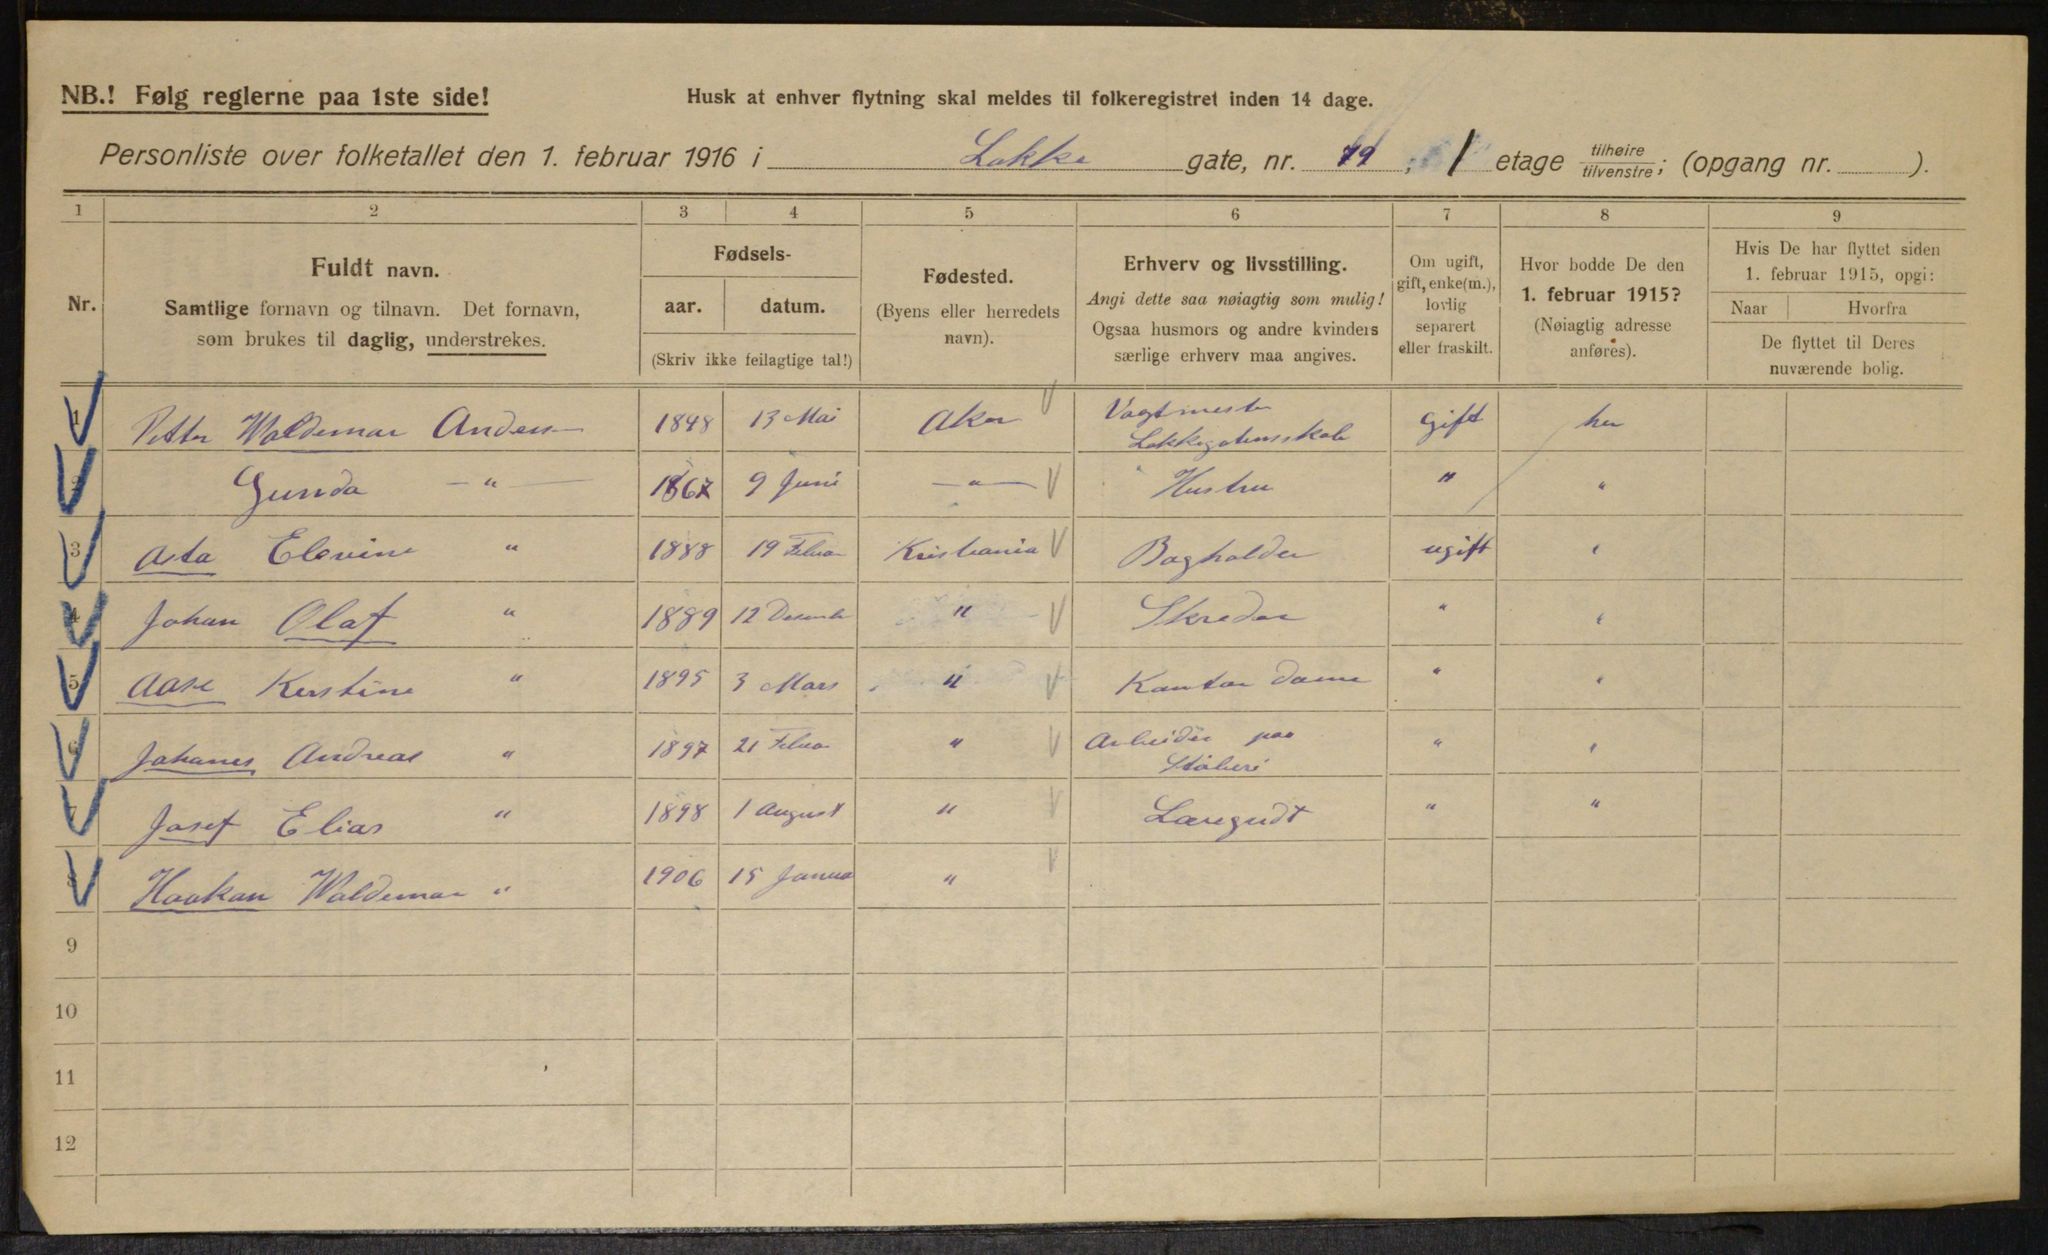 NB.! Følg reglerne paa 1ste side!
Husk at enhver flytning skal meldes til folkeregistret inden 14 dage.
Personliste over folketallet den 1. februar 1916 i Lakke gate, nr. 79, 1 etage tilhøire/tilvenstre; (opgang nr. ).
1 2 3 4 5 6 7 8 9
Nr.
Fuldt navn.
Samtlige fornavn og tilnavn. Det fornavn,
som brukes til daglig, understrekes.
Fødsels-
aar. datum.
(Skriv ikke feilagtige tal!)
Fødested.
(Byens eller herredets
navn).
Erhverv og livsstilling.
Angi dette saa nøiagtig som mulig!
Ogsaa husmors og andre kvinders
særlige erhverv maa angives.
Om ugift,
gift, enke(m.),
lovlig
separert
eller fraskilt.
Hvor bodde De den
1. februar 1915?
(Nøiagtig adresse
anføres).
Hvis De har flyttet siden
1. februar 1915, opgi:
Naar Hvorfra
De flyttet til Deres
nuværende bolig.
1 Petter Waldemar Andersen 1848 13 Mai Aker Vagtmester Gift her
Lakkegatensskole
2 Gunda —"— 1867 9 Juni —"— Hustru " "
3 Asta Elovine " 1888 19 Februar Kristiania Bogholder ugift "
4 Johan Olaf " 1889 12 Desember " Skredder " "
5 Aase Kerstine " 1895 3 Mars " Kontor Dame " "
6 Johanes Andreas " 1897 21 Februar " Arbeider paa " "
Støberi
7 Josef Elias " 1898 1 August " Læregudt " "
8 Haakan Waldemar " 1906 15 Januar "
9
10
11
12